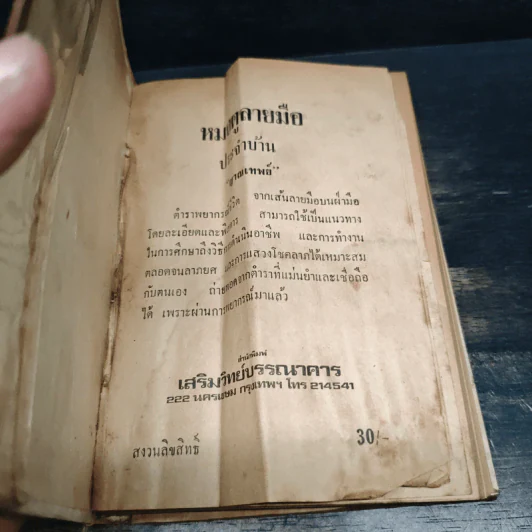 หมอดูลายมือ
ประจำบ้าน
"ญาณเทพย์"
ตำราพยากรณ์ชีวิต จากเส้นลายมือบนฝ่ามือ
โดยละเอียดและพิสดาร สามารถใช้เป็นแนวทาง
ในการศึกษาถึงวิธีการดำเนินอาชีพ และการทำงาน
ตลอดจนลาภยศ และการแสวงโชคลาภได้เหมาะสม
กับตนเอง ถ่ายทอดจากตำราที่แม่นยำและเชื่อถือ
ได้ เพราะผ่านการพยากรณ์มาแล้ว
สำนักพิมพ์
เสริมวิทย์บรรณาคาร
222 นครเขษม กรุงเทพฯ โทร 214541
สงวนลิขสิทธิ์
30/-